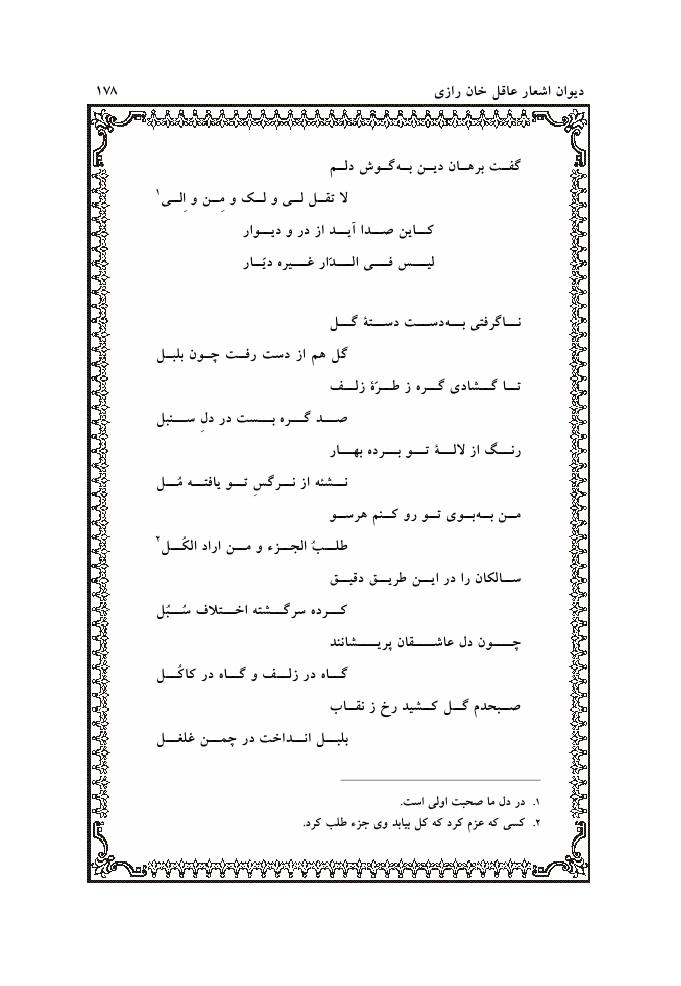 دیوان اشعار عاقل خان رازی ۱۷۸
گفت برهان دین به‌گوش دلم
لا تقل لی و لک و مِن و اِلی۱
کاین صدا آید از در و دیوار
لیس فی الدّار غیره دیّار
ناگرفتی به‌دست دستهٔ گل
گل هم از دست رفت چون بلبل
تا گشادی گره ز طرّهٔ زلف
صد گره بست در دلِ سنبل
رنگ از لالهٔ تو برده بهار
نشئه از نرگسِ تو یافته مُل
من به‌بوی تو رو کنم هرسو
طلبُ الجزء و من اراد الکُل۲
سالکان را در این طریق دقیق
کرده سرگشته اختلاف سُبُل
چون دل عاشقان پریشانند
گاه در زلف و گاه در کاکُل
صبحدم گل کشید رخ ز نقاب
بلبل انداخت در چمن غلغل
۱. در دل ما صحبت اولی است.
۲. کسی که عزم کرد که کل بیابد وی جزء طلب کرد.